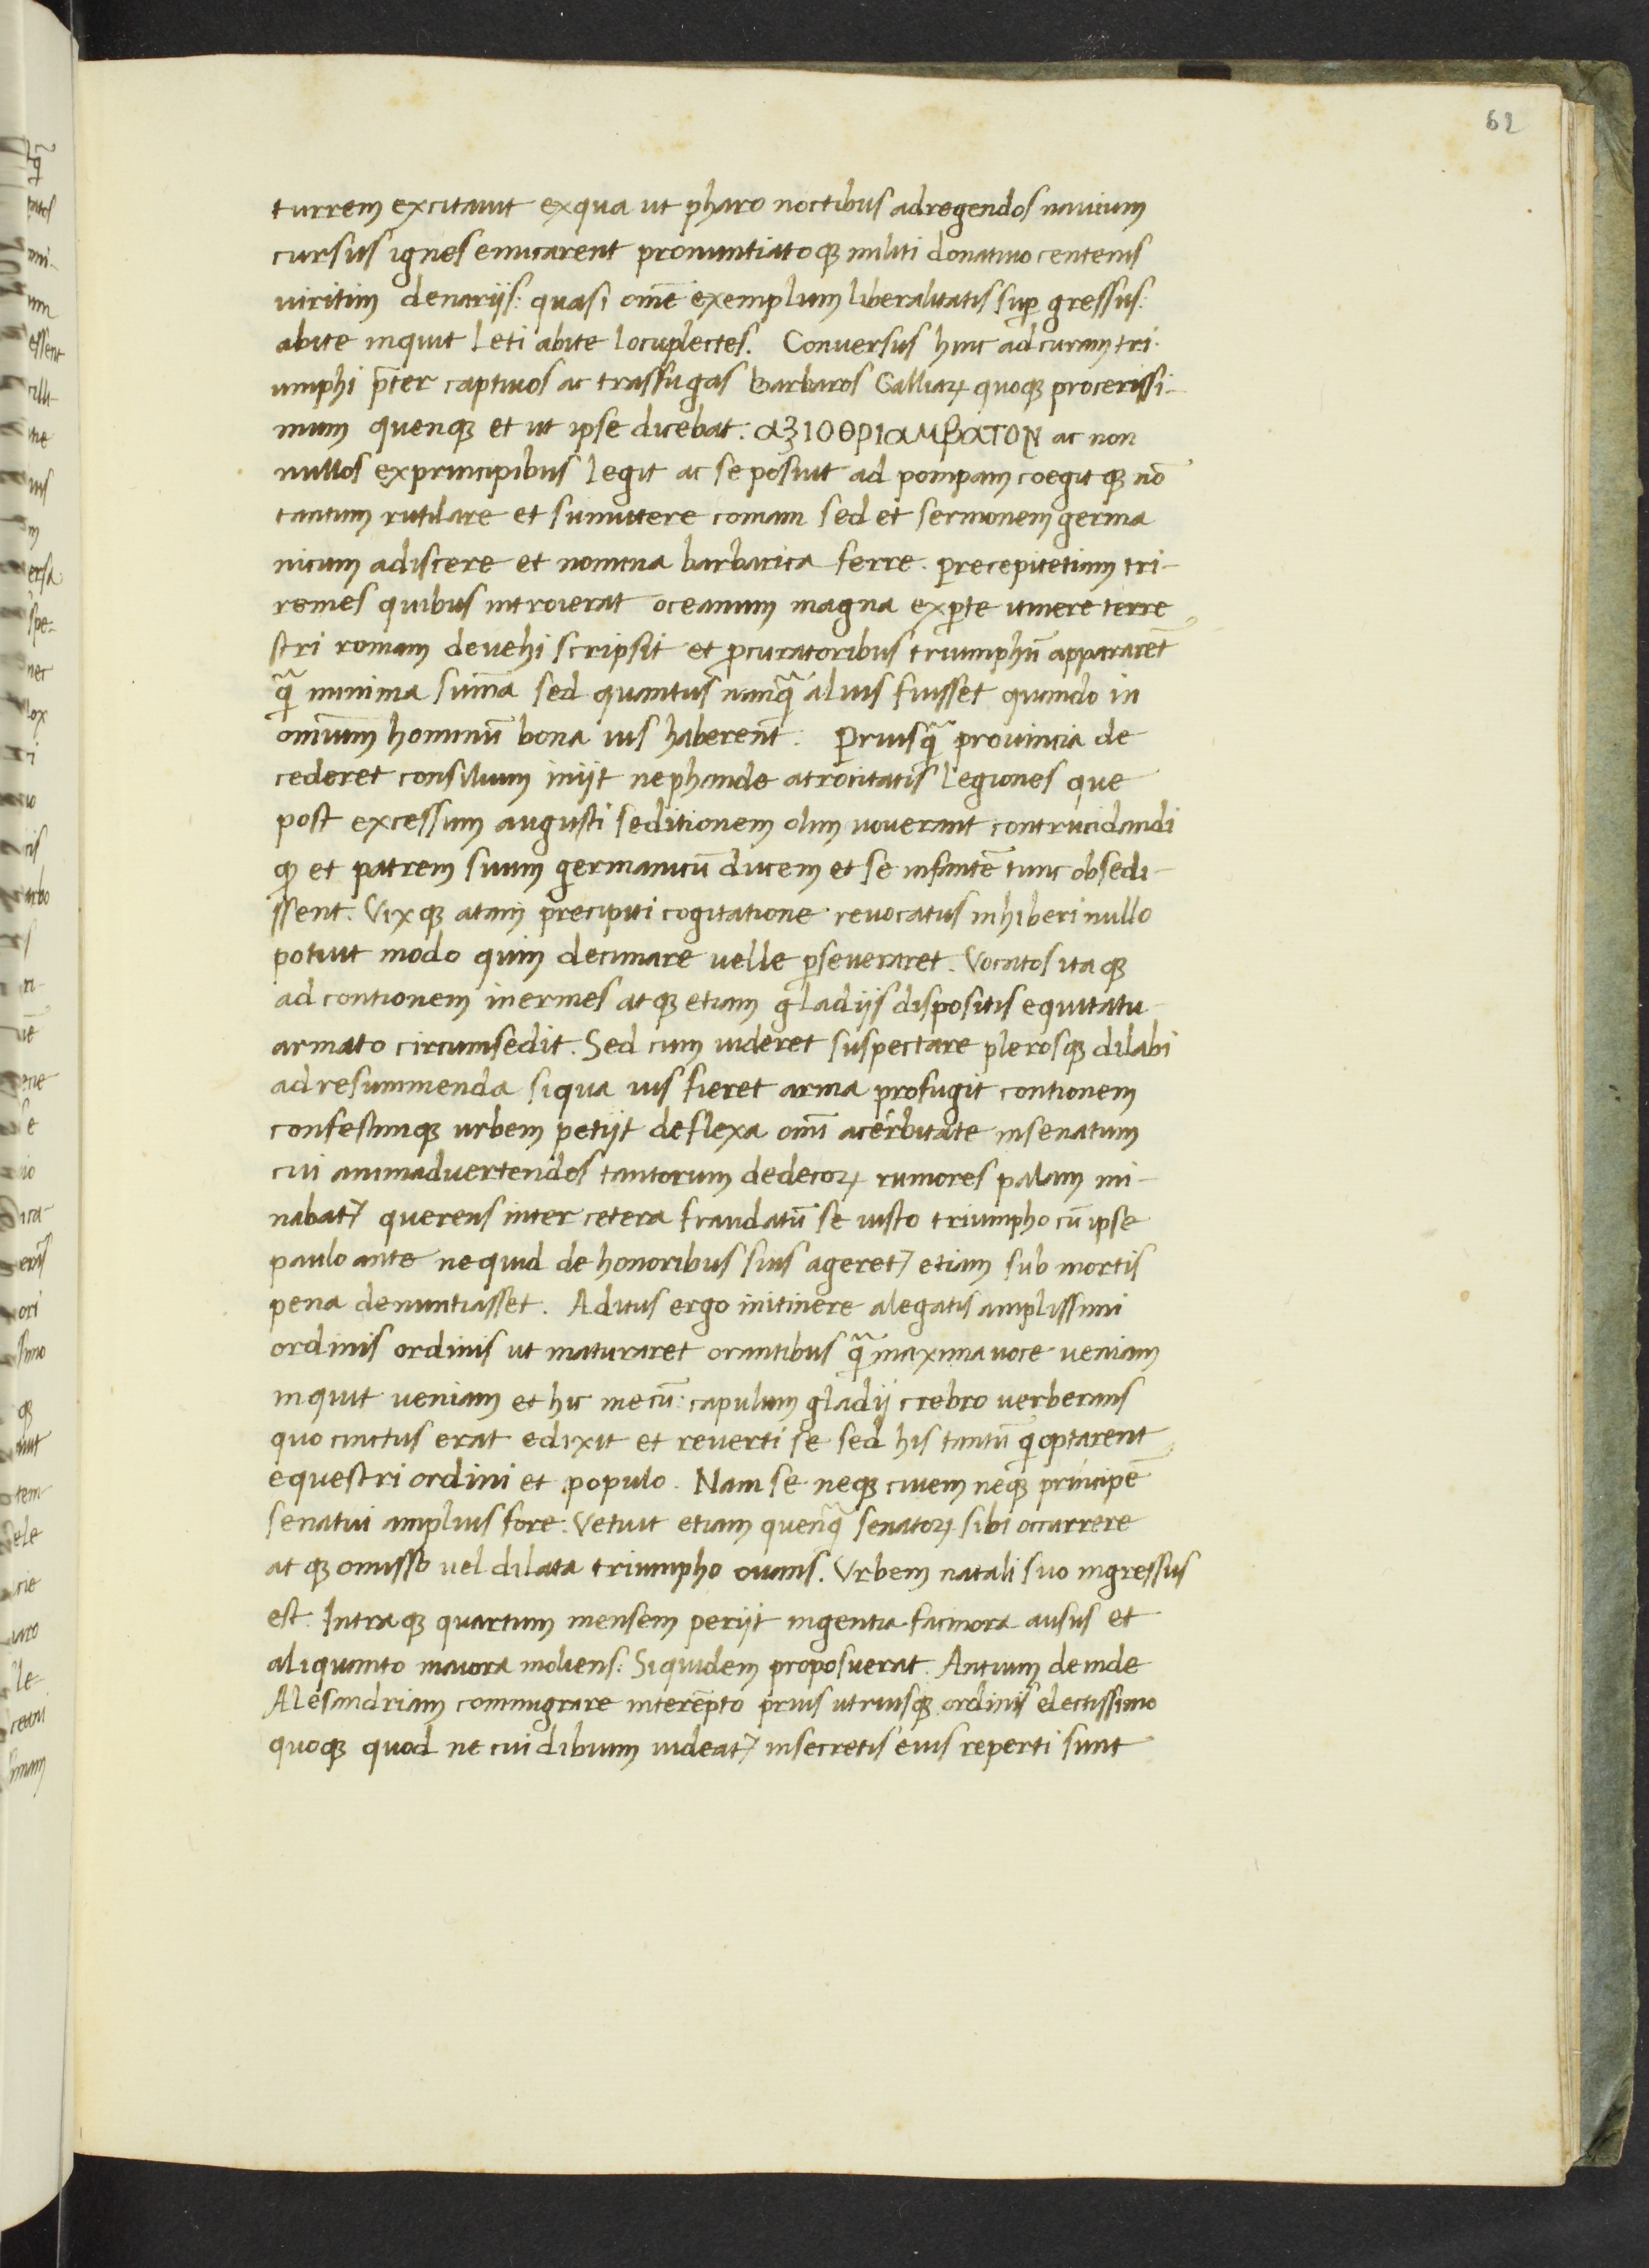 62
turrem excitauit exqua ut pharo noctibus adregendos nauium
cursus ignes emicarent pronuntiatoqꝫ militi donatiuo centenis
uiritim denarijs: quasi om̄e exemplum liberalitatis suꝑ gressus:
abite inquit leti abite locupletes. Conuersus hinc adcuram tri-
umphi p̄ter captiuos ac trassugas barbaros Galliaꝝ quoqꝫ procerissi-
mum quenqꝫ et ut ipse dicebat: αξιοθριαμβατον ac non
nullos exprincipibus legit ac seposuit ad pompam coegitqꝫ nō
tantum rutilare et sumittere comam sed et sermonem germa
nicum adiscere et nomina barbarica ferre. precepitetiam tri-
remes quibus introierat oceanum magna exꝑte itinere terre
stri romam deuehi scripsit et ꝓcuratoribus triumphū appararēt
q̄ minima sum̄a sed quantus nunq̄ alius fuisset quando in
omīum hominū bona ius haberent. Priusq̄ prouincia de
cederet consilium inijt nephande atrocitatis legiones que
post excessum augusti seditionem olim mouerant contrucidandi
qꝫ et patrem suum germanicū ducem et se infantē tunc obsedi-
ssent. Vixqꝫ atam precipiti cogitatione reuocatus inhiberi nullo
potuit modo quin decimare uelle ꝑseueraret. Vocatos itaqꝫ
ad contionem inermes atqꝫ etiam gladijs dispositis equitatu
armato circumsedit. Sed cum uideret suspectare plerosqꝫ dilabi
adresummenda siqua uis fieret arma profugit contionem
confestimqꝫ urbem petijt deflexa om̄i acerbitate insenatum
cui animaduertendos tantorum dedecoꝝ rumores palam mi-
nabat᷑ querens inter cetera fraudatū se iusto triumpho cū ipse
paulo ante nequid de honoribus suis ageret᷑ etiam sub mortis
pena denuntiasset. Aditus ergo initinere alegatis amplissimi
ordinis ordinis ut maturaret orantibus q̄ maxima uoce ueniam
inquit ueniam et hic mecū: capulum gladij crebro uerberans
quo cinctus erat edixit et reuerti se sed his tantū qui optarent
equestri ordini et populo. Nam se neqꝫ ciuem neqꝫ principē
senatui amplius fore. Vetuit etiam quenq̄ senatoꝝ sibi occurrere
atqꝫ omisso uel dilata triumpho ouans. Vrbem natali suo ingressus
est. Intraqꝫ quartum mensem perijt ingentia facinora ausus et
aliquanto maiora moliens: Siquidem proposuerat. Antium deinde
Alesandriam commigrare interēpto prius utriusqꝫ ordinis electissimo
quoqꝫ quod ne cui dibium uideat᷑ insecretis eius reperti sunt